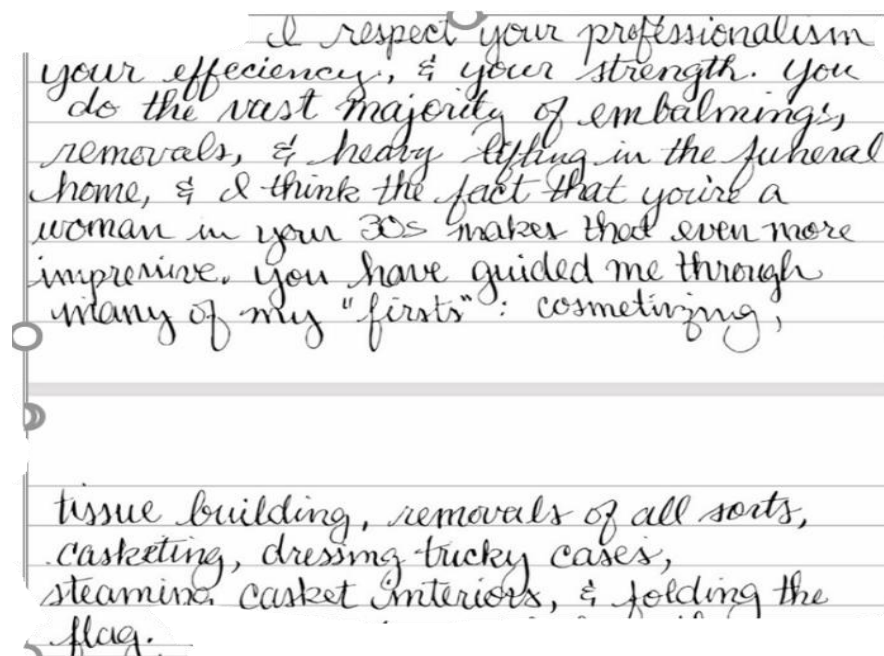 I respect your professionalism
your effeciency, & your strength. You
do the vast majority of embalmings,
removals, & heavy lifting in the funeral
home, & I think the fact that you're a
woman in your 30s makes that even more
impressive. You have guided me through
many of my "firsts": cosmetizing,
tissue building, removals of all sorts,
casketing, dressing tricky cases,
steaming casket interiors, & folding the
flag.